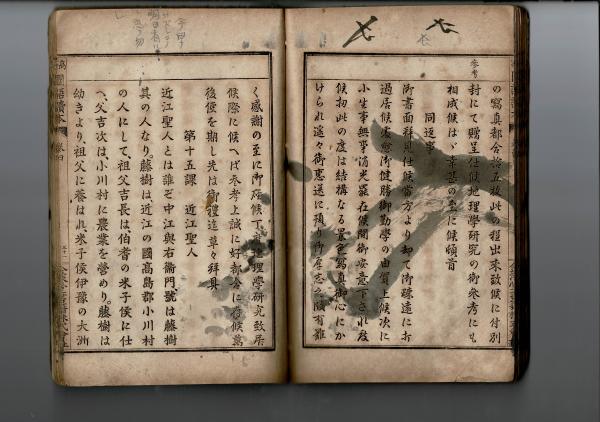 参考
の寫真都合拾五枚此の程出来致候に付別
封にて贈呈仕候地理學研究の御参考にも
相成候はゞ幸甚の至に候頓首
同返事
御書面拜見仕候當方より却て御疎遠に打
過居候處愈御健勝御勤學の由賀上候次に
小生事無事消光罷在候間御安意下され度
候扨此の度は結構なる景色寫真御心にか
けられ遠々御惠送に預り御厚志之段有難
く感謝の至に御座候
地理學研究致居
候際に候へば参考上誠に好都合に存候萬
後便を期し先は御禮迄草々拜具
第十五課 近江聖人
近江聖人とは誰ぞ中江與右衞門、號は藤樹
其の人なり。藤樹は近江の國高島郡小川村
の人にして、祖父吉長は、伯耆の米子侯に仕
へ、父吉次は、小川村に農業を營めり。藤樹は
幼きより祖父に養はれ、米子侯伊豫の大洲
國語讀本
卷四